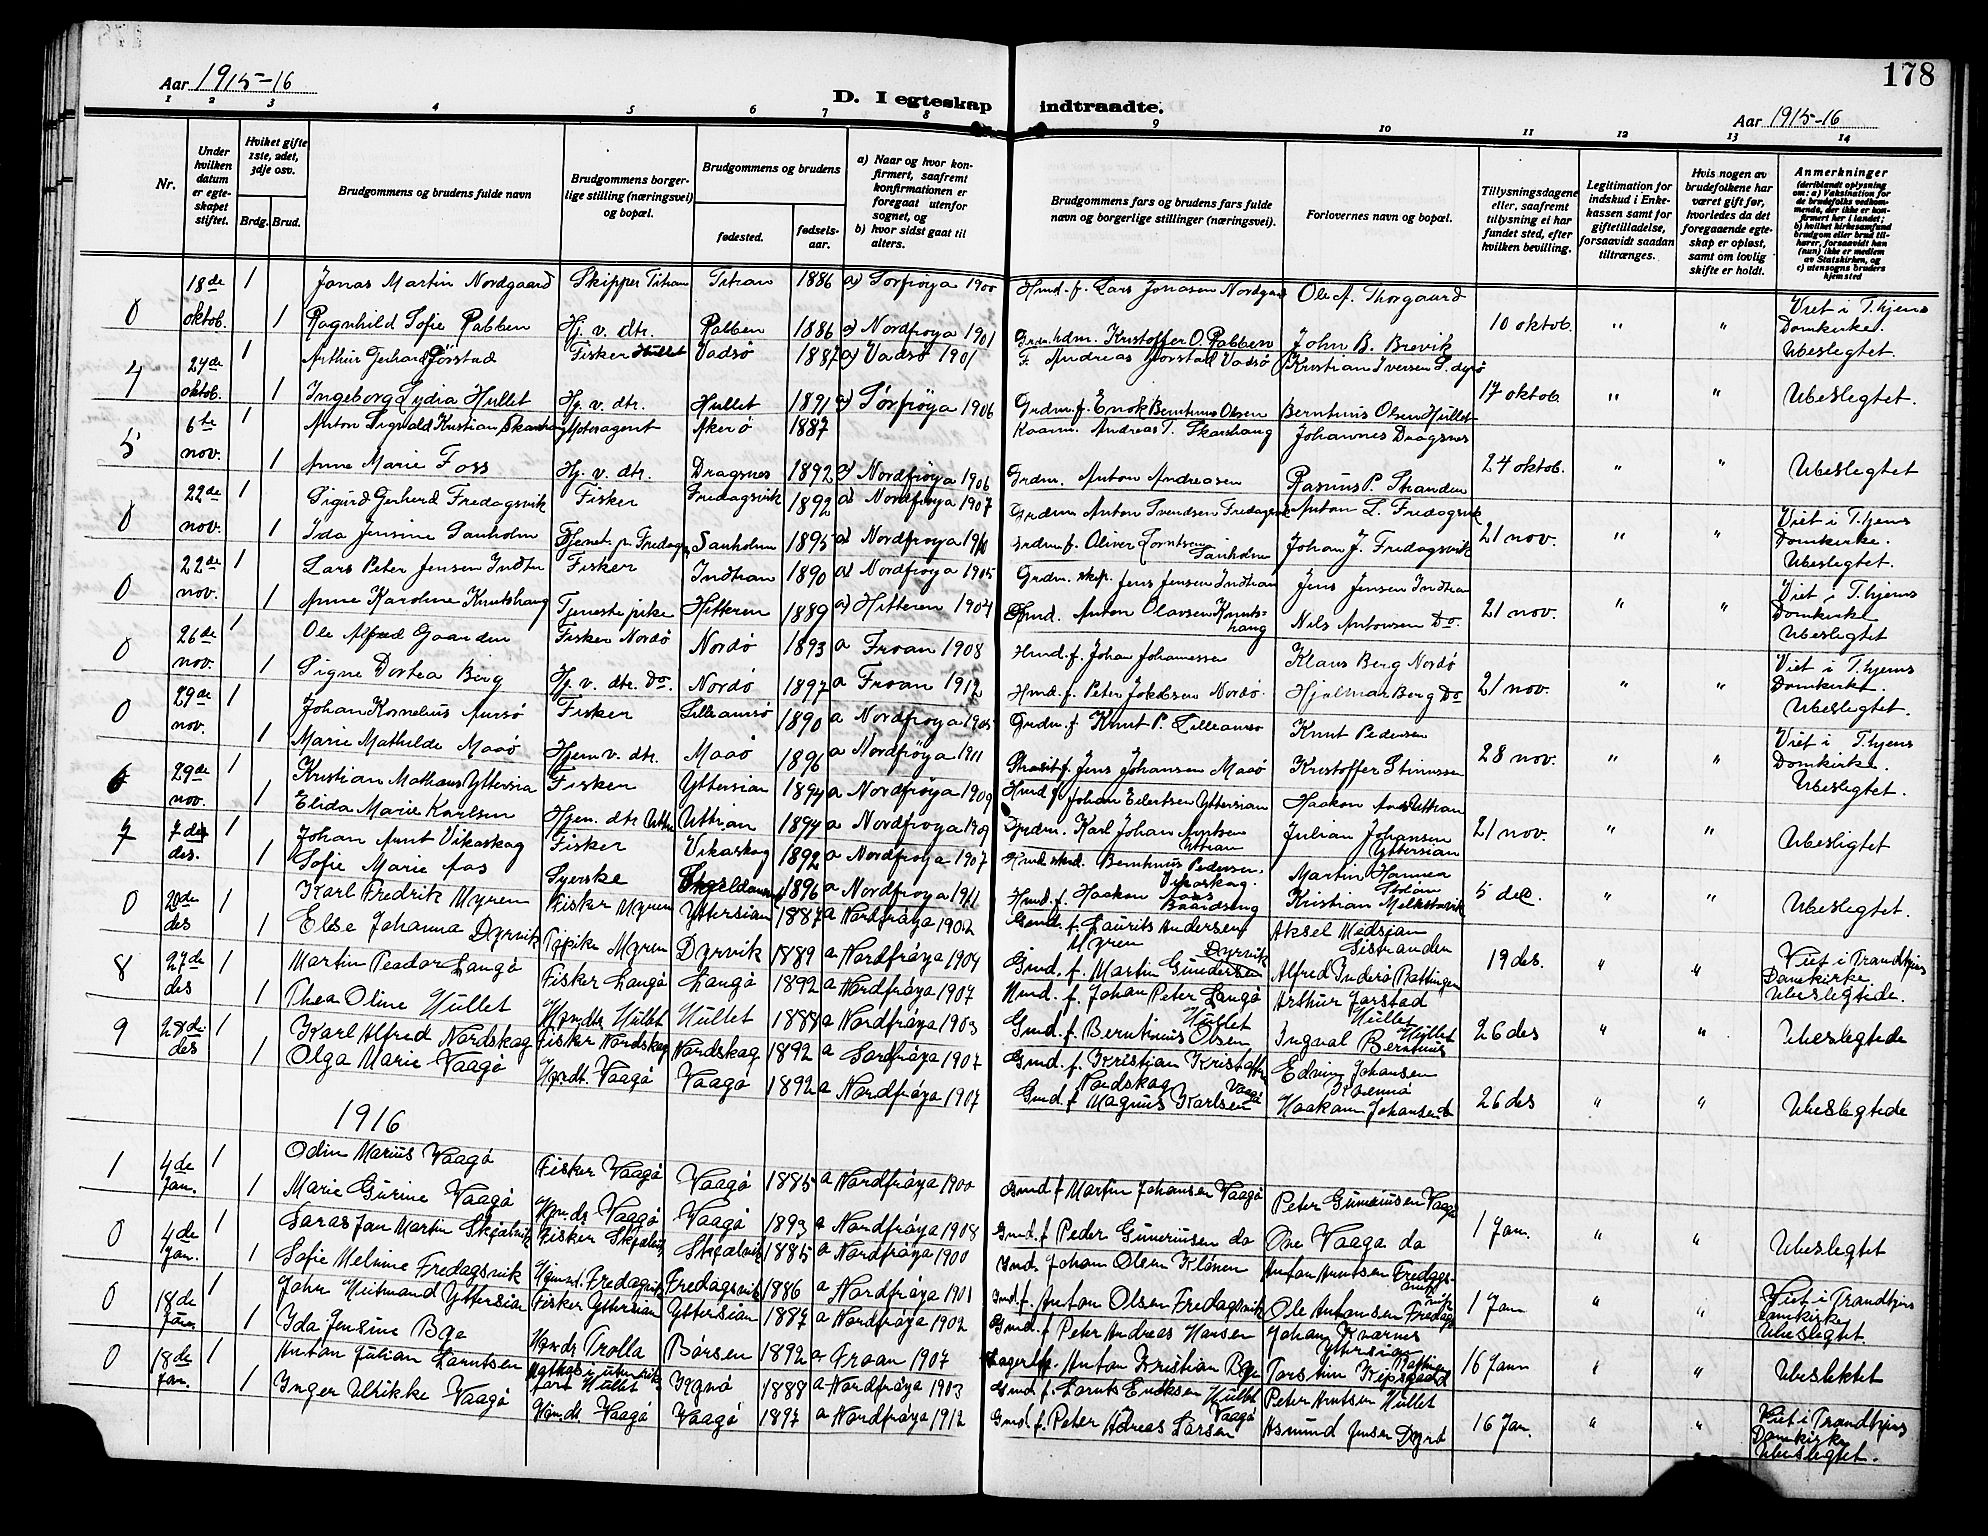 178
Aar 1915-16
D. I egteskap indtraadte.
Aar 1915-16
1 2 3 4 5 6 7 8 9 10 11 12 13 14
Nr.
Under hvilken datum er egteskapet stiftet.
Hvilket gifte 1ste, 2det, 3dje osv.
Brdg. Brud.
Brudgommens og brudens fulde navn
Brudgommens borgerlige stilling (næringsvei) og bopæl.
Brudgommens og brudens
fødested.
fødselsaar.
a) Naar og hvor konfirmert, saafremt konfirmationen er foregaat utenfor sognet, og
b) hvor sidst gaat til alters.
Brudgommens fars og brudens fars fulde navn og borgerlige stillinger (næringsvei).
Forlovernes navn og bopæl.
Tillysningsdagene eller, saafremt tillysning ei har fundet sted, efter hvilken bevilling.
Legitimation for indskud i Enkekassen samt for giftetilladelse, forsaavidt saadan tiltrænges.
Hvis nogen av brudefolkene har været gift før, hvorledes da det foregaaende egteskap er opløst, samt om lovlig skifte er holdt.
Anmerkninger
(deriblandt oplysning om: a) Vaksination for de brudefolks vedkommende, der ikke er konfirmert her i landet; b) hvilket kirkesamfund brudgom eller brud tilhører, forsaavidt han (hun) ikke er medlem av Statskirken, og c) utensogns bruders hjemsted
0 18de oktob. 1 Jonas Martin Nordgaard Skipper Titran Titran 1886 a) Sørfrøya 1900 Hmd. f. Lars Jonasen Nordgaard Ole A. Thorgaard
1 Ragnhild Sofie Rabben Hj. v. dtr. Rabben 1886 a) Nordfrøya 1901 Grdm. Kristoffer O. Rabben John B. Brevik 10 oktob. " " Viet i T.hjems Domkirke. Ubeslegtet.
4 24de oktob. 1 Arthur Gerhard Jørstad Fisker Hullet Vadsø 1887 a) Vadsø 1901 F. Andreas Jørstad Vadsø Kristian Iversen
1 Ingeborg Lydia Hullet Hj. v. dtr. Hullet 1891 a) Sørfrøya 1906 Grdm. f. Enok Bernthius Olsen Bernthius Olsen Hullet 17 oktob. " " Ubeslegtet.
5 6te nov. 1 Anton Sigvald Kristian Skarshaug Agent Akerø 1887 Andreas T. Skarshaug Johannes Dragsnes
1 Anne Marie Foss Hj. v. dtr. Dragsnes 1892 a) Nordfrøya 1906 Grdm. Anton Andreasen Rasmus P. Stranden 24 oktob. " " Ubeslegtet
0 22de nov. 1 Sigurd Gerhard Fredagsvik Fisker Fredagsvik 1892 a) Nordfrøya 1907 Grdm. Anton Svendsen Fredagsvik Anton L. Fredagsvik
1 Ida Jensine Sanholm Tjenst. p. Fredagsv Sanholm 1895 a) Nordfrøya 1910 Grdm. f. Oliver Lorntsen Sanholm Johan J. Fredagsvik 21 nov. " " Viet i T.hjems Domkirke. Ubeslegtet.
0 22de nov. 1 Lars Peter Jensen Indtran Fisker Indtran 1890 a) Nordfrøya 1905 Grdm. skp. Jens Jensen Indtran Jens Jensen Indtran
1 Anne Karoline Knutshaug Tjenestepike Hitteren 1889 a) Hitteren 1904 Hmd. Anton Olavsen Knutshaug Nils Antonsen Do. 21 nov. " " Viet i T.hjems Domkirke Ubeslegtet
0 26de nov. 1 Ole Alfred Gaarden Fisker Nordø Nordø 1893 a Froan 1908 Hmd. f. Johan Johannessen Klaus Berg Nordø
1 Signe Dortea Berg Hj. v. dtr. Do. Nordø 1897 a Froan 1912 Hmd. f. Peter Jakobsen Nordø. Hjalmar Berg Do 21 nov. " " Viet i T.hjems Domkirke. Ubeslegtet.
0 29de nov. 1 Johan Kornelius Aursø Fisker Lilleaursø 1890 a Nordfrøya 1905 Grdm. f Knut P. Lilleaursø Knut Pedersen
1 Marie Mathilde Maaø Hjem. v. dtr. Maaø 1896 a Nordfrøya 1911 Jens Johansen Maaø Kristoffer Stinussen 28 nov. " " Viet i T.hjems Domkirke. Ubeslegtet.
6 29de nov. 1 Kristian Mathæus Yttersian Fisker Yttersian 1894 a Nordfrøya 1909 Hmd. f. Johan Eilertsen Yttersian Haakon Uttian
1 Elida Marie Karlsen Hjem. dtr Uttian Uttian 1894 a Nordfrøya 1909 Grdm. Karl Johan Arntsen Uttian Julian Johansen Yttersian 21 nov. " " Ubeslegtet
7 7de des. 1 Johan Arnt Vikaskag Fisker Vikaskag 1892 a Nordfrøya 1907 Bernthius Pedersen Vikaskag. Martin Hamnen
1 Sofie Marie Aas Syerske 1896 a Nordfrøya 1911 Hmd. f. Haakon Baardseng Kristian Melkstavik 5 dec. " " Ubeslegtet.
0 20de des 1 Karl Fredrik Myren Fisker Myren Yttersian 1887 a Nordfrøya 1902 Gmd. f. Laurits Andersen Myren Aksel Medsian Sistranden
1 Else Johanna Dyrvik Tjpike Myren Dyrvik 1889 a Nordfrøya 1904 Gmd. f. Martin Gundersen Dyrvik Alfred Inderø Rattingen 19 des. " " Viet i Trondhjms Domkirke Ubeslegtede.
8 27de des 1 Martin Peadar Langø Fisker Langø Langø 1892 a Nordfrøya 1907 Hmd. f. Johan Peter Langø Arthur Jørstad Hullet
1 Thea Oline Hullet Hjmdtr Hullet Hullet 1888 a Nordfrøya 1903 Gmd. f. Berntinus Olsen Hullet Ingval Berntiuis Hullet 26 des " " Ubeslegtede
9 28de des 1 Karl Alfred Nordskag Fisker Nordskag Nordskag 1892 a Sørfrøya 1907 Gmd. f. Kristian Kristoffer Nordskag Edvin Johansen Kvernø
1 Olga Marie Vaagø Hjmdt. Vaagø Vaagø 1892 a Nordfrøya 1907 Gmd. f Magnus Karlsen Vaagø Haakon Johansen do 26 des " " Ubeslegtede
1916
1 4de Jan. 1 Odin Marius Vaagø Fisker Vaagø Vaagø 1885 a Nordfrøya 1900 Gmd f Martin Johansen Vaagø Peter Gunneriusen Vaagø
1 Marie Gurine Vaagø Hjmdt Vaagø Vaagø 1893 a Nordfrøya 1908 Gmd. f Peder Guneriusen do Ove Vaagø do 1 Jan. " " Ubeslegtet
0 4de Jan. 1 Laras Jan Martin Skjelvik Fisker Skjelvik Skjelvik 1885 a Nordfrøya 1900 Gmd. Johan Olsen Klønen Anton Arntsen Fredagsvik
1 Sofie Melvine Fredagsvik Hjmd. Fredagsvik Fredagsvik 1886 a Nordfrøya 1901 Gmd. f. Anton Olsen Fredagsvik Ole Antonsen Fredagsvik 1 Jan " " Viet i Trondhjms Domkirke Ubeslegtet.
0 18de Jan. 1 John Meitmand Yttersian Fisker Yttersian Yttersian 1887 a Nordfrøya 1902 Gmd. f Peter Andreas Hansen Johan Kvarnes Yttersian
1 Ida Jensine Bye Hjmdt Trolla Børsen 1892 a Froan 1907 Anton Kristian Bye Torstein Rattingen 16 Jann " " Ubeslektet
0 18de Jan. 1 Anton Julian Larntsen Hullet 1888 a Nordfrøya 1903 Gmd. f. Larnts Eriksen Hullet Peter Arntsen Hullet
1 Inger Ulrikke Vaagø Hjmdt. Vaagø Vaagø 1897 a Nordfrøya 1912 Gmd. f. Peter Andreas Larsen Vaagø Asmund Jensen Dyrø 16 Jan. " " Viet i Trondhjms Domkirke Ubeslegtet.